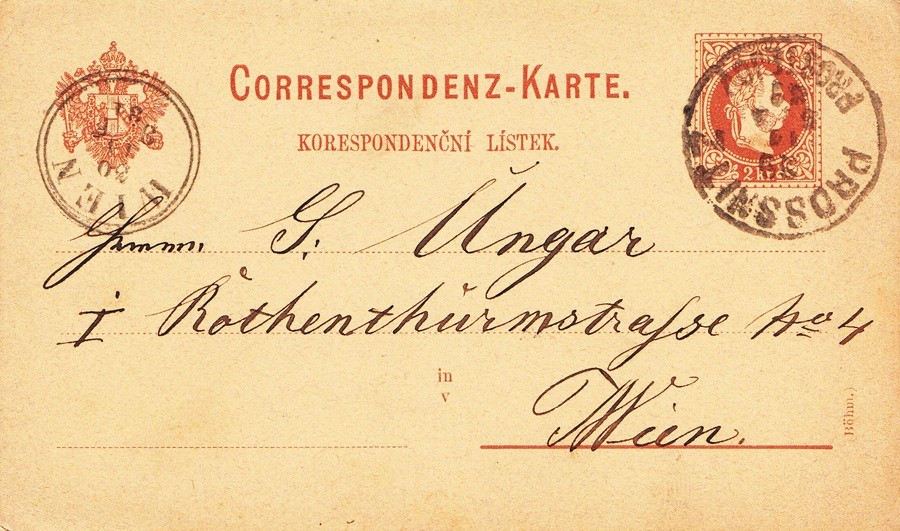 CORRESPONDENZ-KARTE.
KORESPONDENČNÍ LÍSTEK.
WIEN
PROSSNITZ
2 KR.
Herrn S. Ungar
I Rothenthürmstrasse No 4
in
v
Wien.
Böhm.)